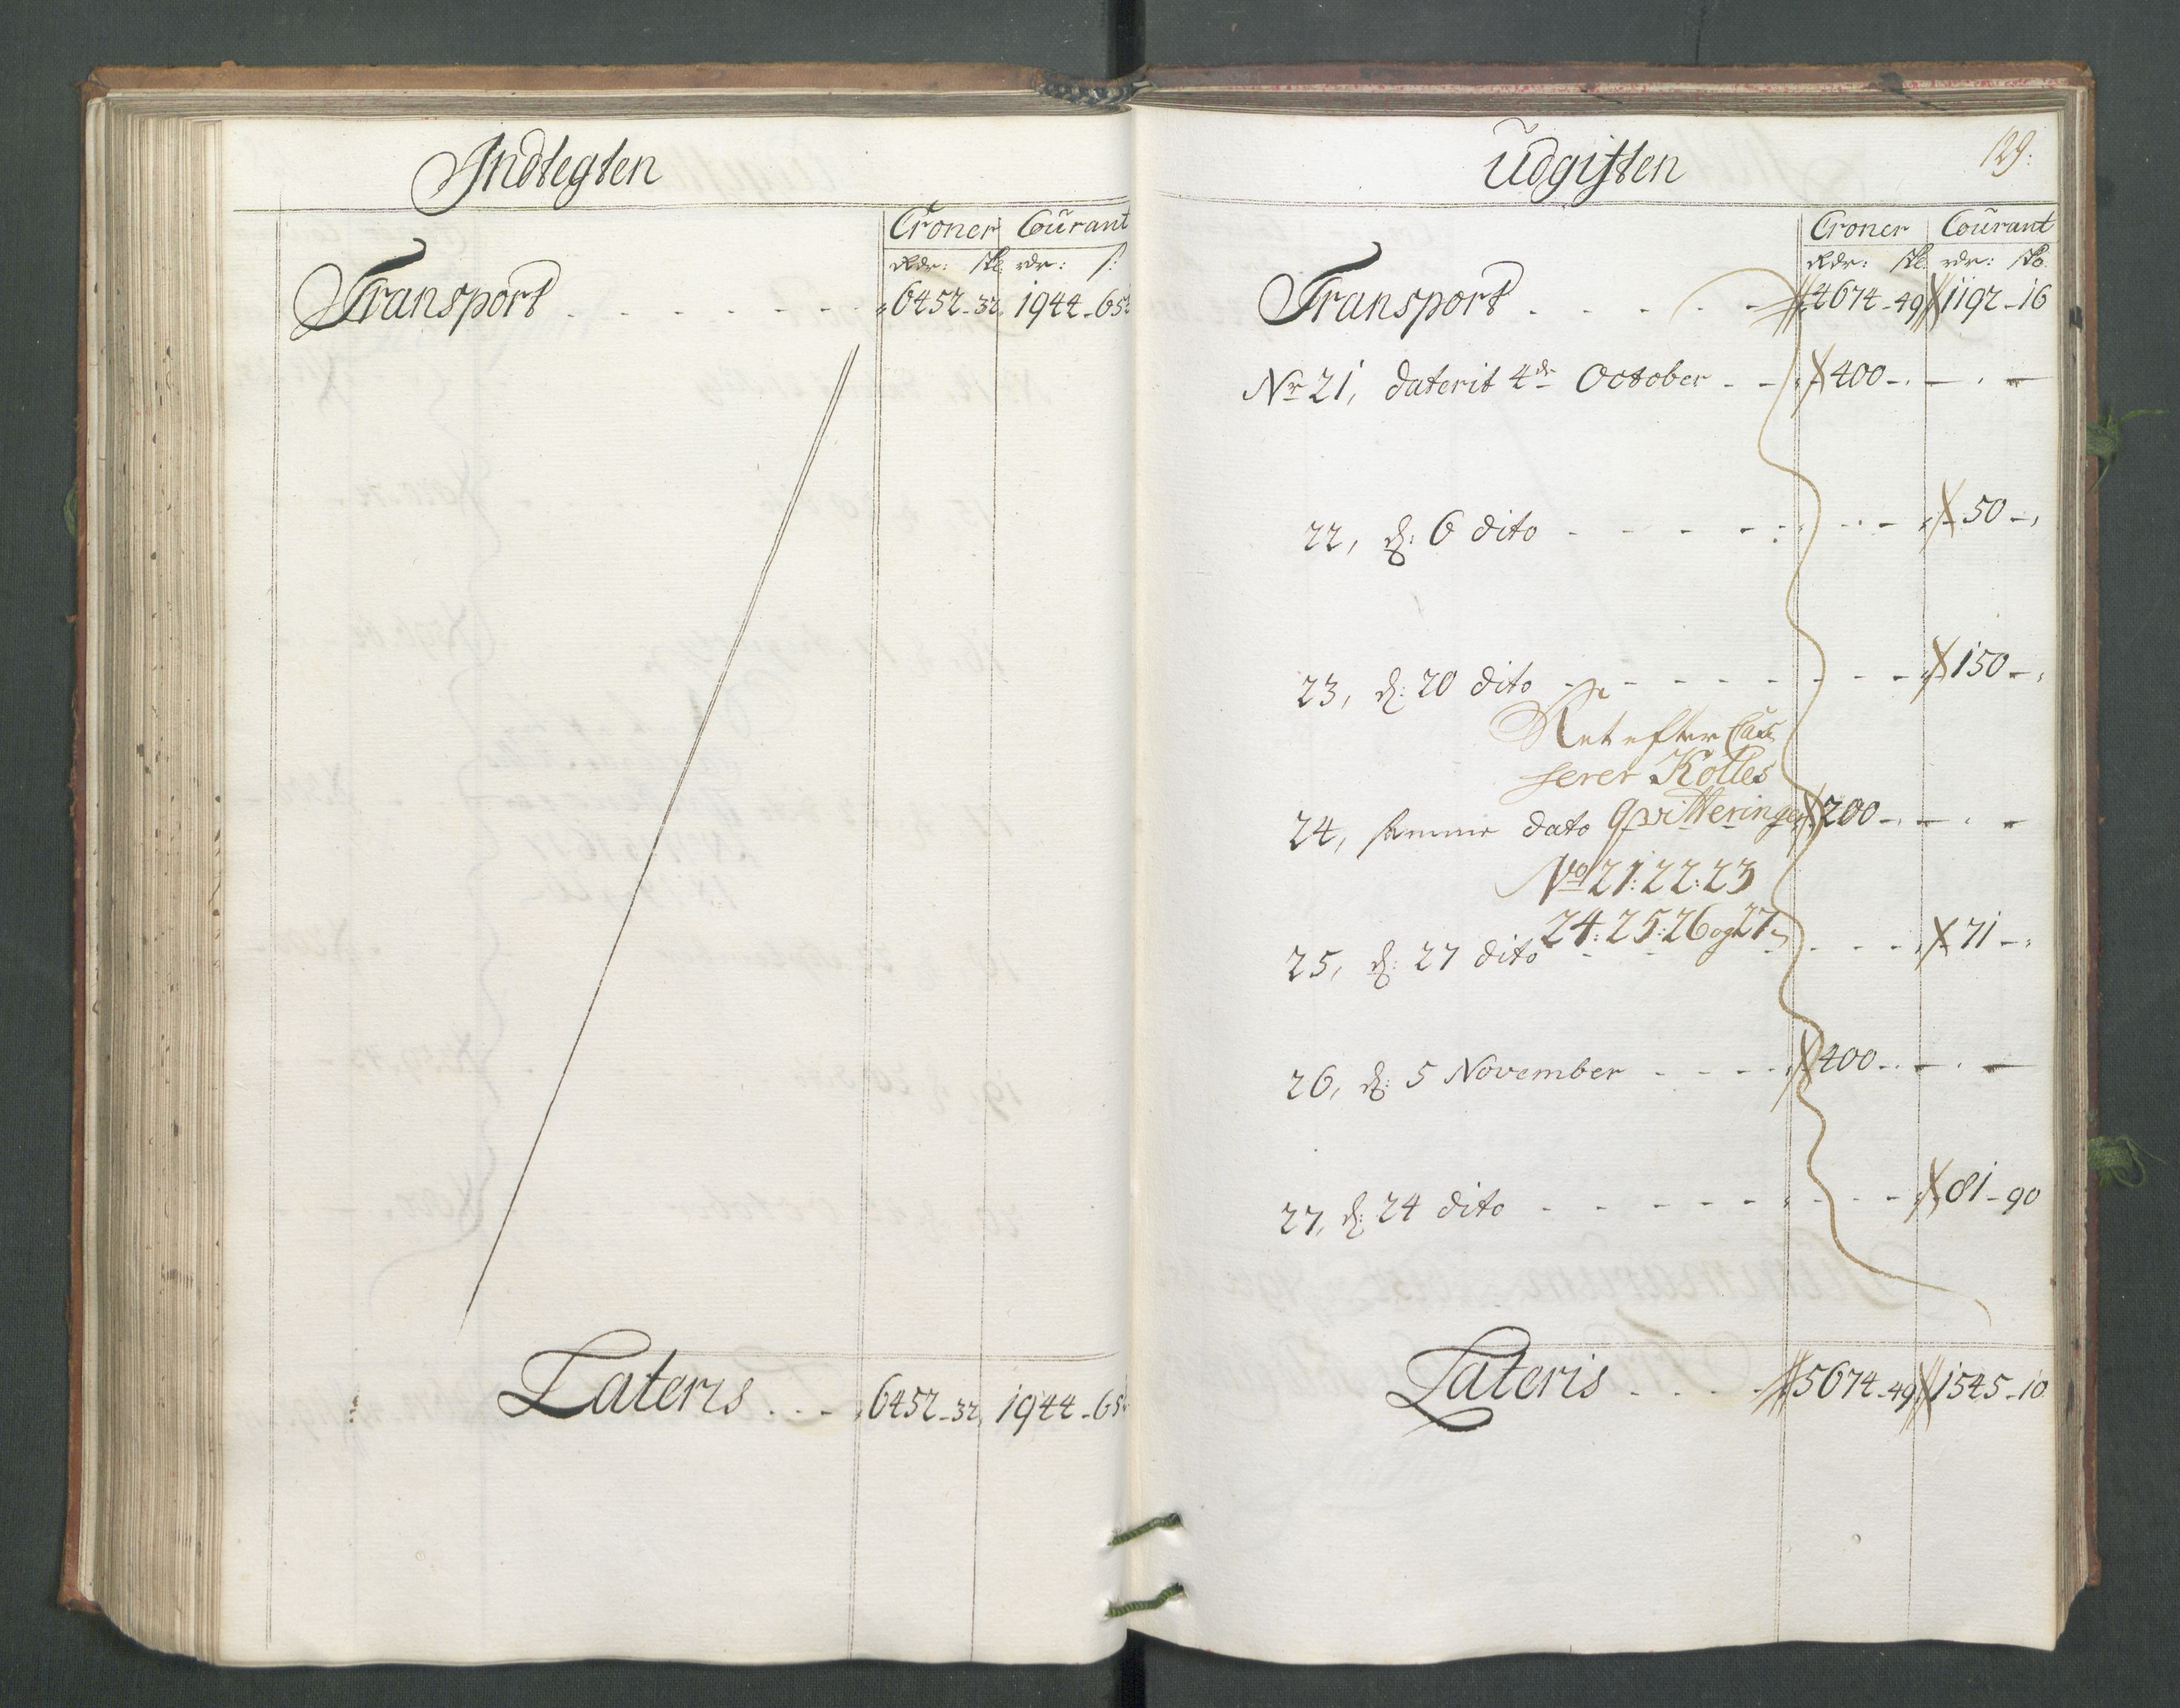 Indtegten
Croner Courant
Rdr: sk: rdr: s:
Transport . . . . . . 6452-32 1944-65
Lateris . . . 6452-32 1944-65
Udgiften
129:
Croner Courant
Rdr: sk: rdr: sk:
Transport . . . . . 4674-49 1192-16
Nr 21, daterit 4de October - - 400 - . - . -
22, d: 6 dito - - - - - 50 -
23, d: 20 dito - - - - - 150 -
Ret efter Cas
serer Kolles
24, samme dato qvitteringer 200 - . - . -
No 21: 22: 23
24: 25: 26 og 27
25, d: 27 dito - - - - 71 -
26, d: 5 November - - - 400 - . - . -
27, d: 24 dito - - - - - 81-90
Lateris . . . . 5674-49 1545-10